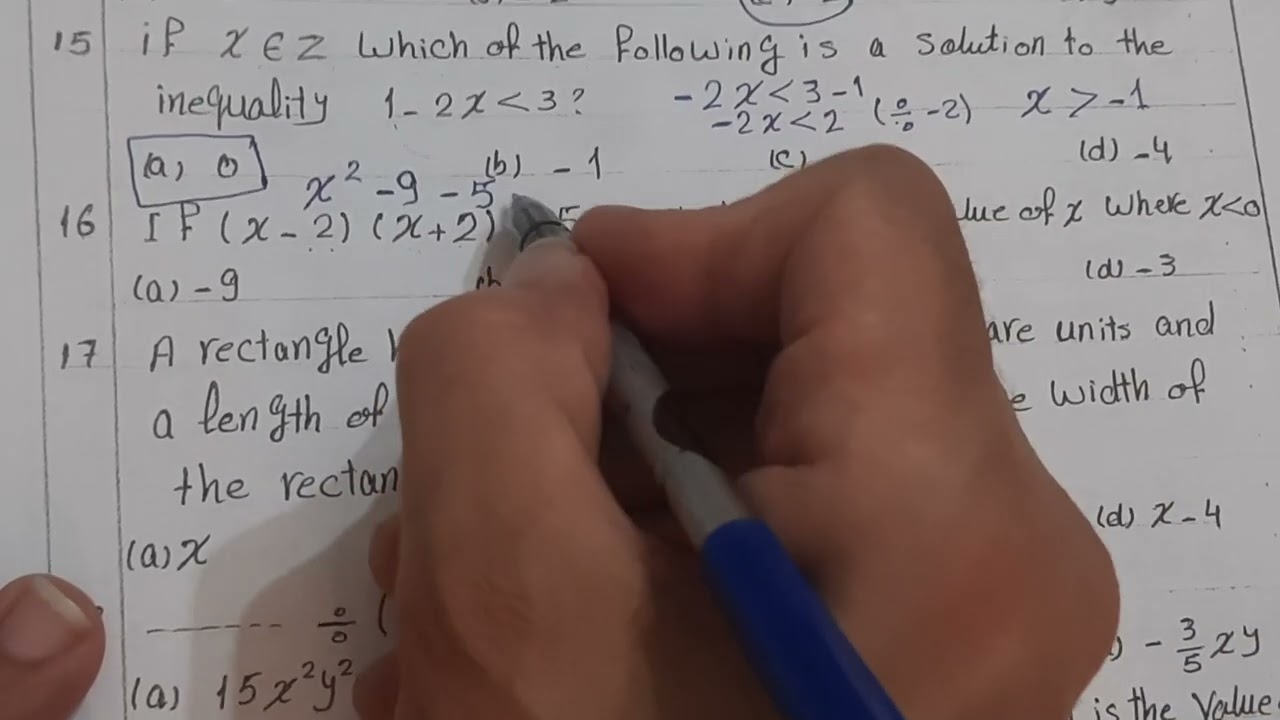 15 if x ∈ Z Which of the following is a solution to the
inequality 1 - 2x < 3 ? -2x < 3 - 1
-2x < 2 (÷ -2) x > -1
(a) 0 (b) - 1 (c) (d) -4
x² - 9 - 5
16 If (x - 2) (x + 2) 5 lue of x where x<0
(a) - 9 (d) - 3
17 A rectangle are units and
a length of width of
the rectan
(a) x (d) x - 4
-------- ÷ (
(a) 15x²y² - 3/5 xy
is the Value